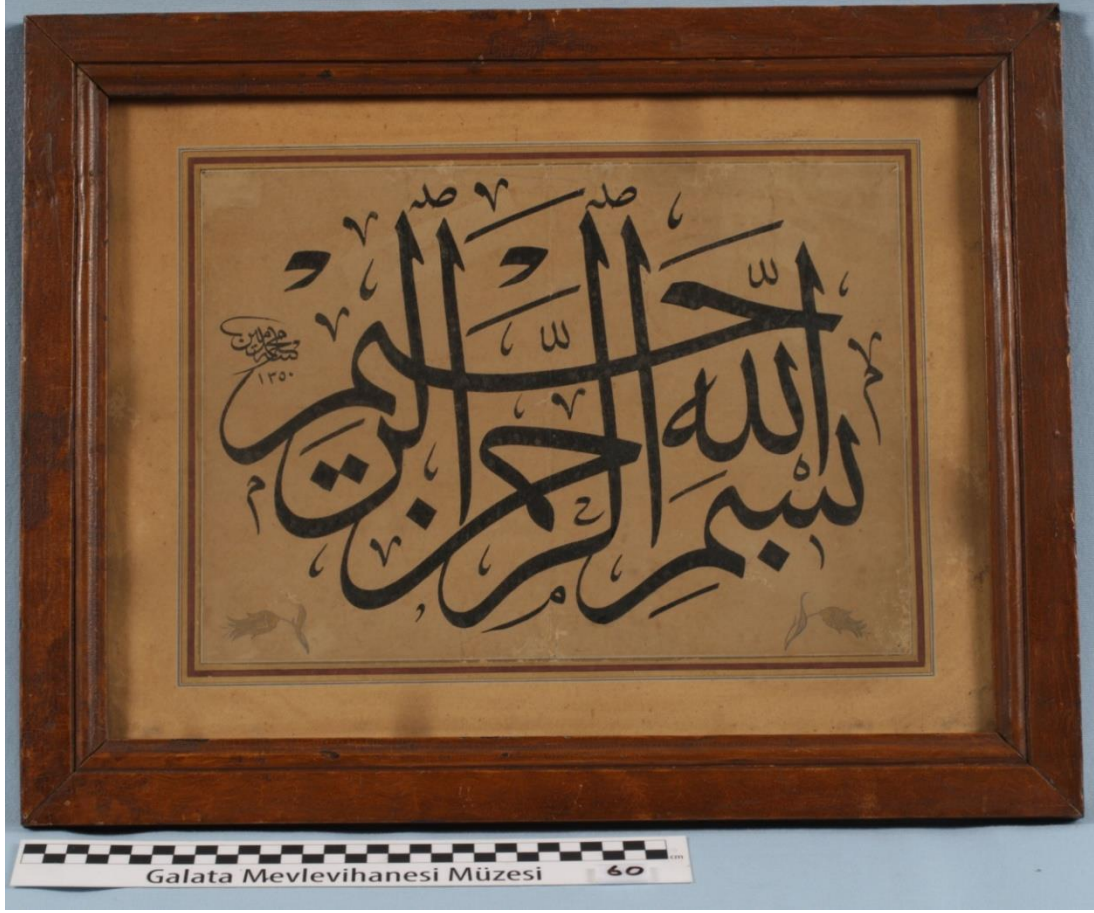 بسم الله الرحمن الرحيم
١٣٥٠
cm
Galata Mevlevihanesi Müzesi 60